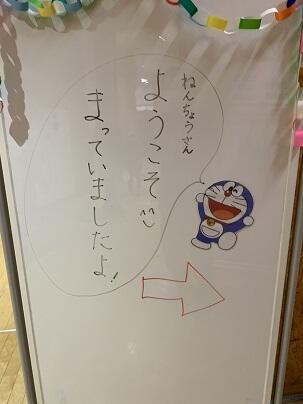 ねんちょうさん
ようこそ^^
まっていましたよ!